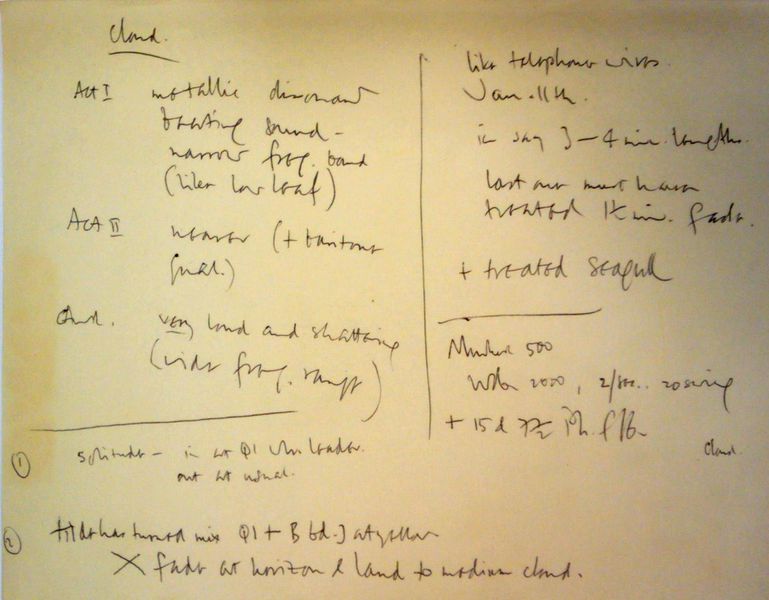 Cloud.
Act I metallic dissonant
beating sound -
narrow freq. band
(like low leaf)
Act II nearer (+ baritone
qual.)
And. very loud and shattering
(wide freq. range)
like telephone wires.
Jan. 11th.
in say 3 - 4 min. lengths.
last one must have
treated 1½ min. fade.
+ treated seagull
500
2000, 2/sec.. 20 swing
+ 15 d
Cloud.
① Solitude - in at Q1 loader.
out as usual.
② has turned mix Q1 + B bd.
X fade at horizon & land to medium cloud.